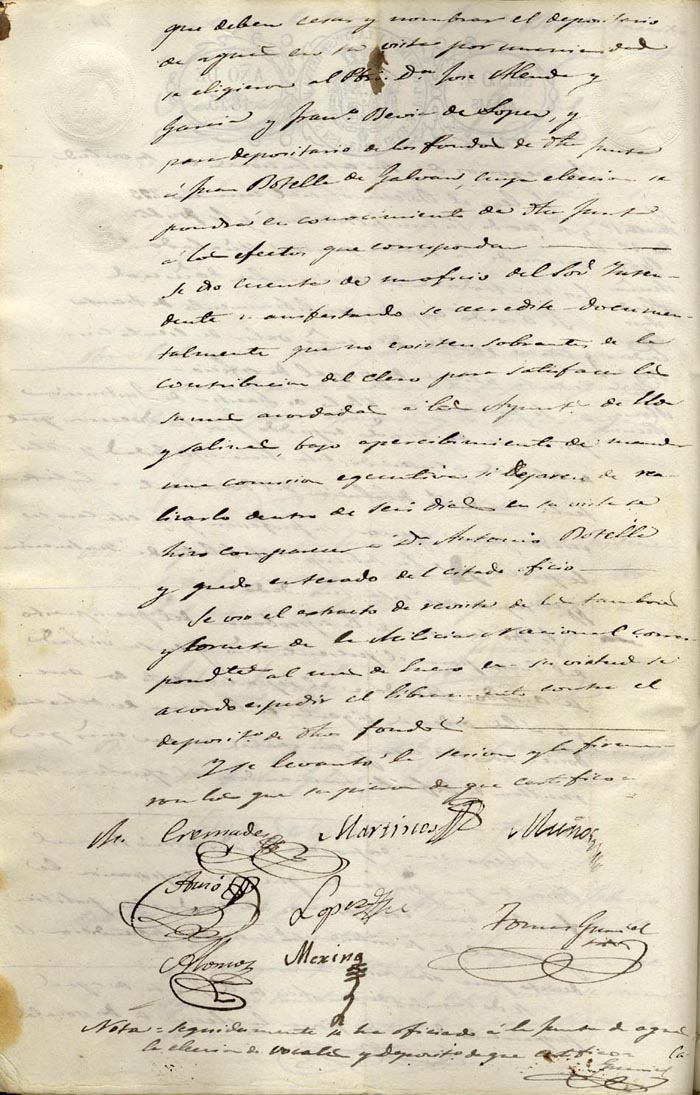 que deben cesar y nombrar el depositario
de aguas en su vista por unanimidad
se eligieron al Pbro. Dn. Jose Mende y
Garcia y Franco. Bevia de Lopez, y
para depositario de los fondos de dha Junta
á Juan Botella de Galvan, cuya eleccion se
pondrá en conocimiento de dha Junta
á los efectos que correspondan
Se dio cuenta de un oficio del Sor. Inten-
dente manifestando se acredite documen-
talmente que no existen sobrantes de la
contribucion del clero para satisfacer las
sumas acordadas á los Ayunts. de
y Salinas, bajo apercibimiento de mandar
una comision egecutiva si dejase de rea-
lizarlo dentro de seis dias en su vista se
hizo comparecer á Dn. Antonio Botella
y quedo enterado del citado oficio
Se vio el extracto de revista de los tambores
y corneta de la Milicia Nacional corres-
pondte. al mes de Enero en su virtud se
acordo espedir el libramiento contra el
deposito. de dhos fondos
Y se levantó la sesion y la firma
ron los que supieron de que certifico =
Cremades Martinez Muñoz
Lopez
Tomas
Alonso
Nota = Seguidamente se ha oficiado á la Junta de aguas
la eleccion de vocales y deposito. de que certifico